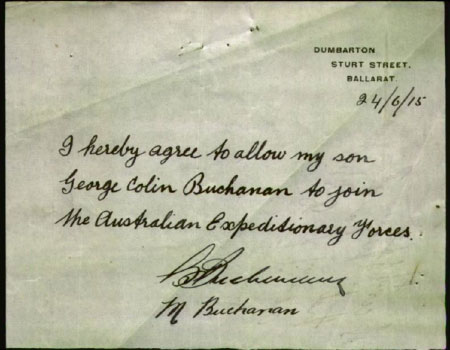 DUMBARTON
STURT STREET.
BALLARAT.
24/6/15
I hereby agree to allow my son
George Colin Buchanan to join
the Australian Expeditionary Forces.
Buchanan
M Buchanan